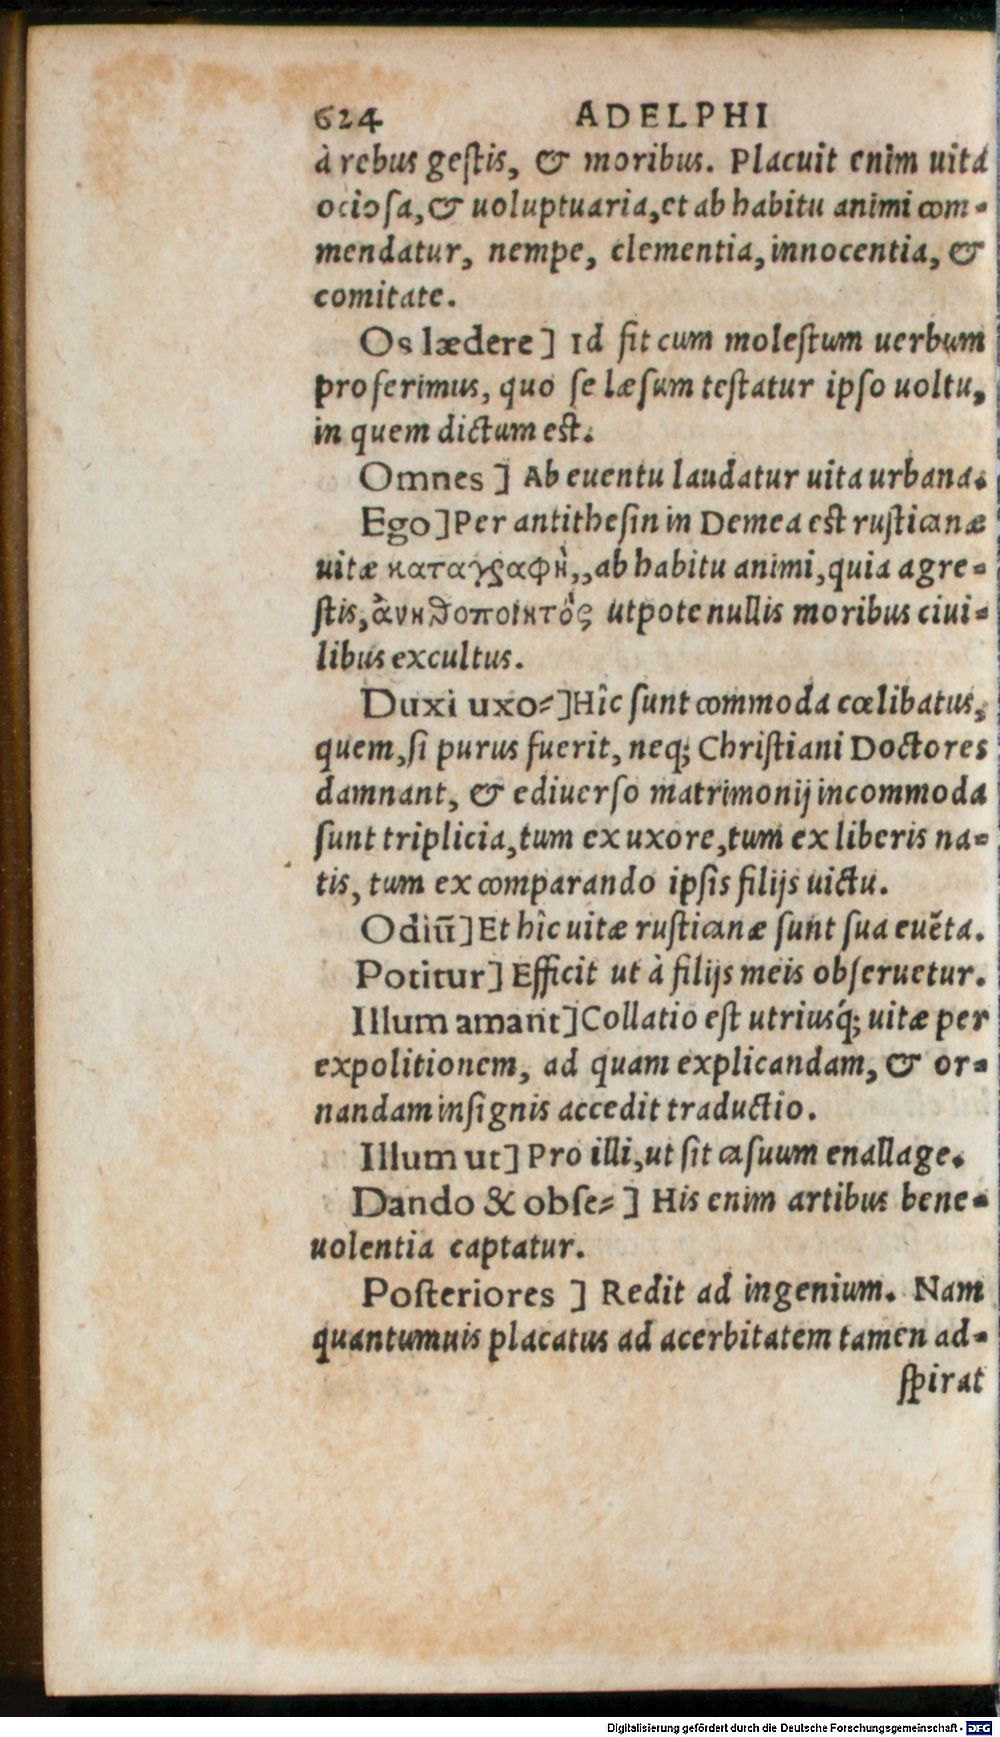 624 ADELPHI
à rebus gestis, & moribus. Placuit enim uita
ociosa, & uoluptuaria, et ab habitu animi com-
mendatur, nempe, clementia, innocentia, &
comitate.
Os lædere] Id fit cum molestum uerbum
proferimus, quo se læsum testatur ipso uoltu,
in quem dictum est.
Omnes] Ab euentu laudatur uita urbana.
Ego] Per antithesin in Demea est rusticanæ
uitæ καταγραφὴ,, ab habitu animi, quia agre-
stis, ἀνηθοποιητὸς utpote nullis moribus ciui-
libus excultus.
Duxi uxo-] Hîc sunt commoda cœlibatus,
quem, si purus fuerit, neq; Christiani Doctores
damnant, & ediuerso matrimonij incommoda
sunt triplicia, tum ex uxore, tum ex liberis na-
tis, tum ex comparando ipsis filijs uictu.
Odiũ] Et hîc uitæ rusticanæ sunt sua euẽta.
Potitur] Efficit ut à filijs meis obseruetur.
Illum amant] Collatio est utriusq́; uitæ per
expolitionem, ad quam explicandam, & or-
nandam insignis accedit traductio.
Illum ut] Pro illi, ut sit casuum enallage.
Dando & obse-] His enim artibus bene-
uolentia captatur.
Posteriores] Redit ad ingenium. Nam
quantumuis placatus ad acerbitatem tamen ad-
spirat
Digitalisierung gefördert durch die Deutsche Forschungsgemeinschaft - DFG